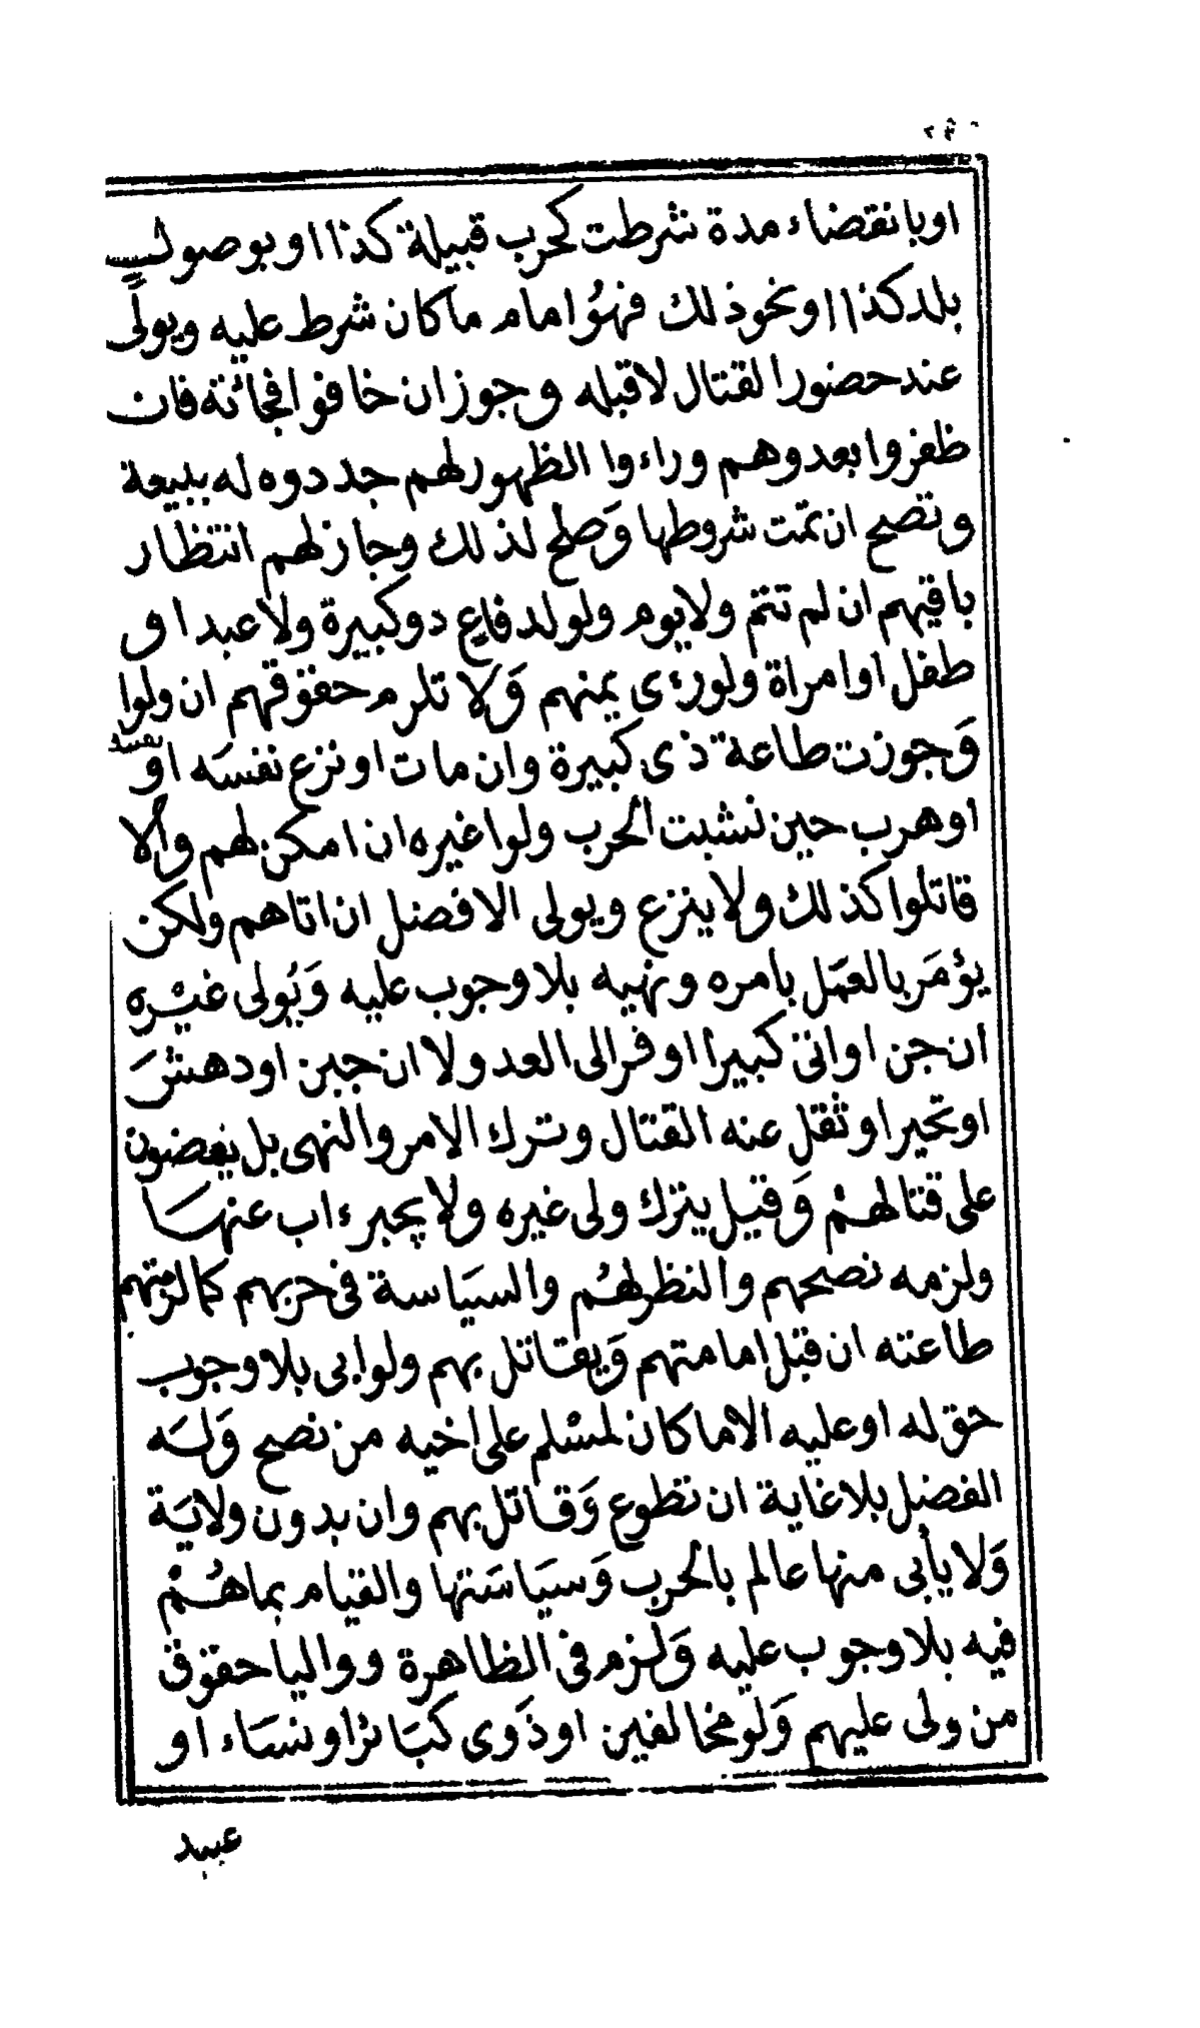 او بانقضاء مدة شرطت كحرب قبيلة كذا او بوصول
بلد كذا او نحو ذلك فهُوَ امام ما كان شرط عليه ويولى
عند حضور القتال لا قبله وجوز ان خافوا فجائته فان
ظفروا بعدوهم وراءوا الظهور لهم جددوه له ببيعة
وتصح ان تمت شروطها وَصلح لذلك وجاز لهم انتظار
باقيهم ان لم تتم ولا يوم ولو لدفاع ذو كبيرة ولا عبد او
طفل او امراة ولو رءى يمنهم وَلا تلزم حقوقهم ان ولوا
وَجوزت طاعة ذى كبيرة وان مات او نزع نفسَه او
او هرب حين نشبت الحرب ولوا غيره ان امكن لهم والا
قاتلوا كذلك ولا ينزع ويولى الافضل ان اتاهم ولكن
يؤمَر بالعمَل بامره ونهيه بلا وجوب عليه وَيُولى غيْره
ان جن او اتى كبيرا او فر الى العد ولا ان جبن او دهشَ
او تحير او ثقل عنه القتال وترك الامر والنهى بل يمضون
على قتالهمْ وَقيل يترك ولى غيره ولا يجبر ءاب عنهَا
ولزمه نصحهم والنظر لهُم والسيَاسة فى حربهم كما لزمتهم
طاعته ان قبل امامتهم وَيقاتل بهم ولو ابى بلا وجوب
حق له او عليه الا ما كان لمسْلم على اخيه من نصح وَلَه
الفضل بلا غاية ان تطوع وَقاتل بهم وان بدون ولايَة
وَلا يأبى منها عالم بالحرب وَسيَاسَتها والقيام بما هُمْ
فيه بلا وجوب عليه وَلزم فى الظاهرة وواليا حقوق
من ولى عليهم وَلو مخالفين او ذَوى كبَائر او نسَاء او
عبيد